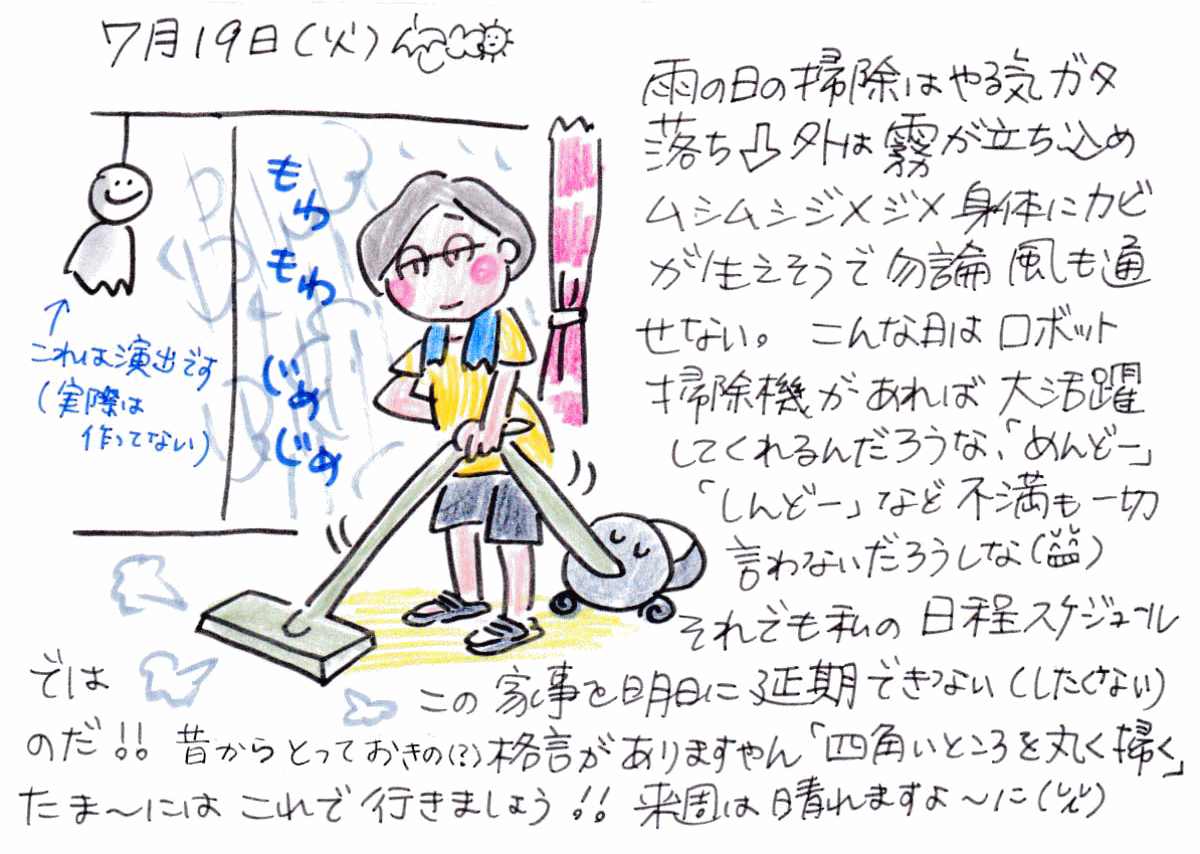 7月19日(火)
雨の日の掃除はやる気ガタ
落ち⇩外は霧が立ち込め
ムシムシジメジメ身体にカビ
が生えそうで勿論風も通
せない。こんな日はロボット
掃除機があれば大活躍
してくれるんだろうな、「めんどー」
「しんどー」など不満も一切
言わないだろうしな(益)
それでも私の日程スケジュール
では
この家事を明日に延期できない(したくない)
のだ!!昔からとっておきの(?)格言がありますやん「四角いところを丸く掃く」
たま〜にはこれで行きましょう!!来週は晴れますよ〜に(汎)
もわ
もわ
じめ
じめ
↑
これは演出です
(実際は
作ってない)